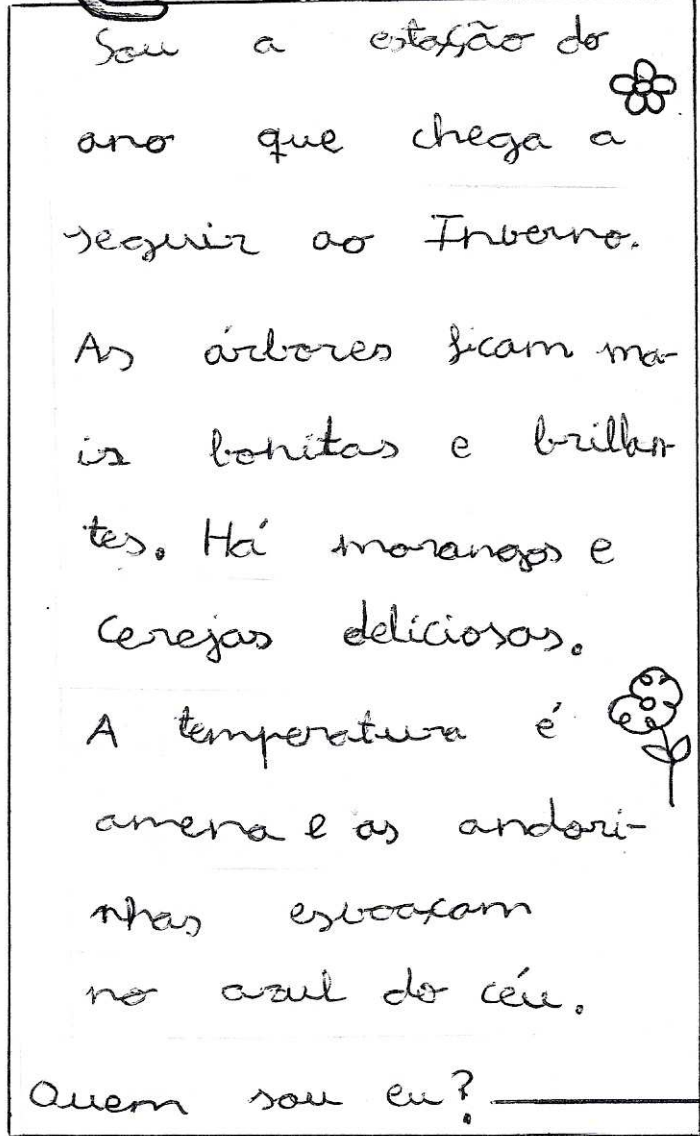 Sou a estação do
ano que chega a
seguir ao Inverno.
As árbores ficam ma-
is bonitas e brilhan
tes. Há morangos e
cerejas deliciosas.
A temperatura é
amena e as andori-
nhas esvoaçam
no azul do céu.
Quem sou eu?